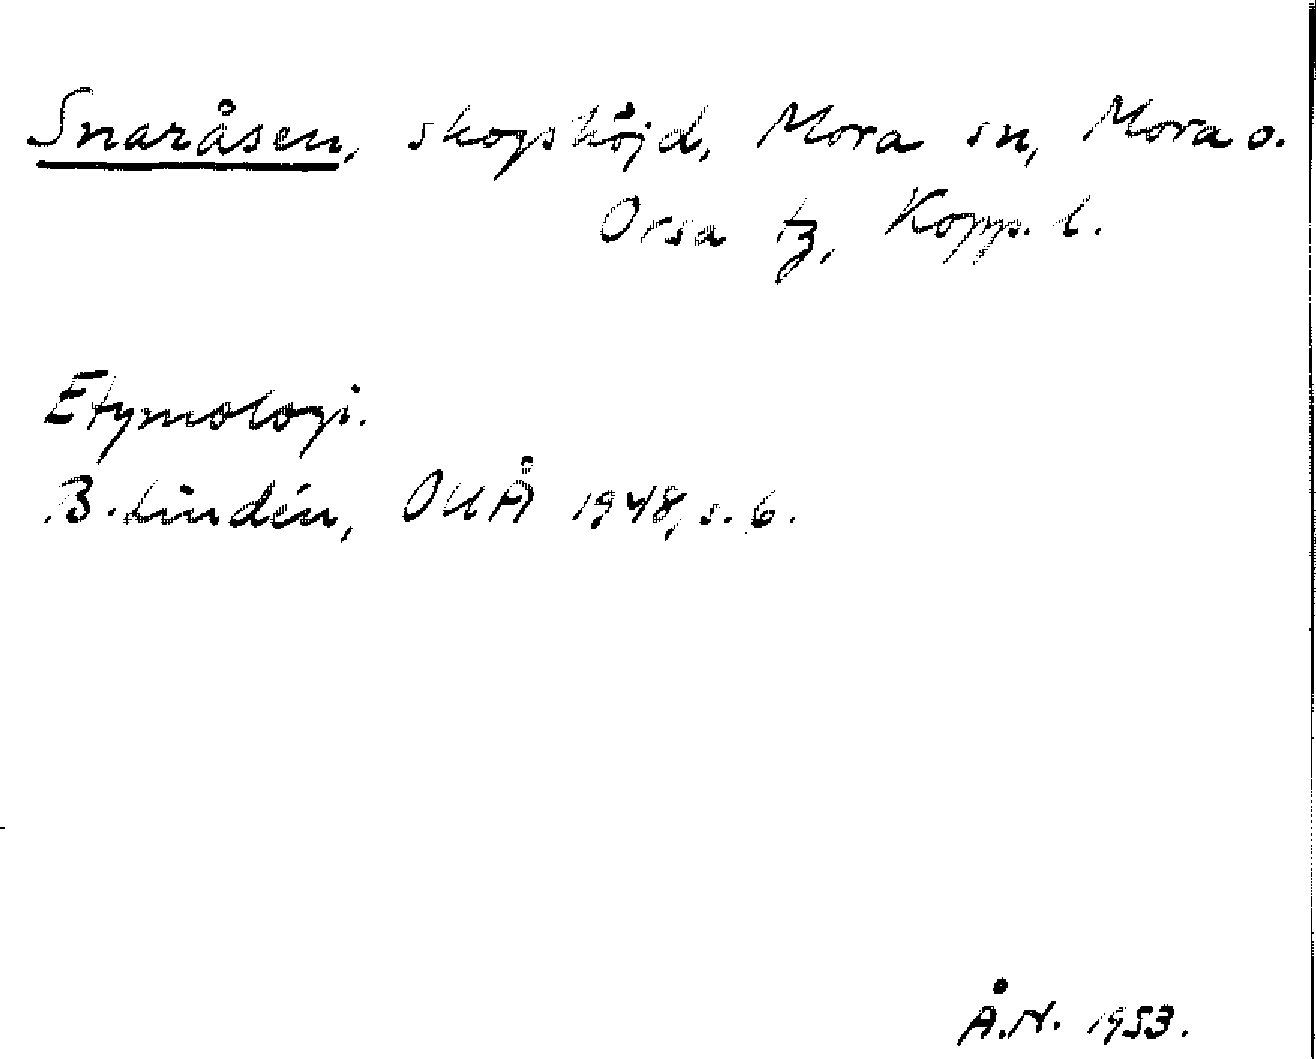 Snaråsen, skogshöjd, Mora sn, Mora o.
Orsa tg, Kopp. l.
Etymologi.
B. Lindén, OUÅ 1948, s. 6.
Å.N. 1953.